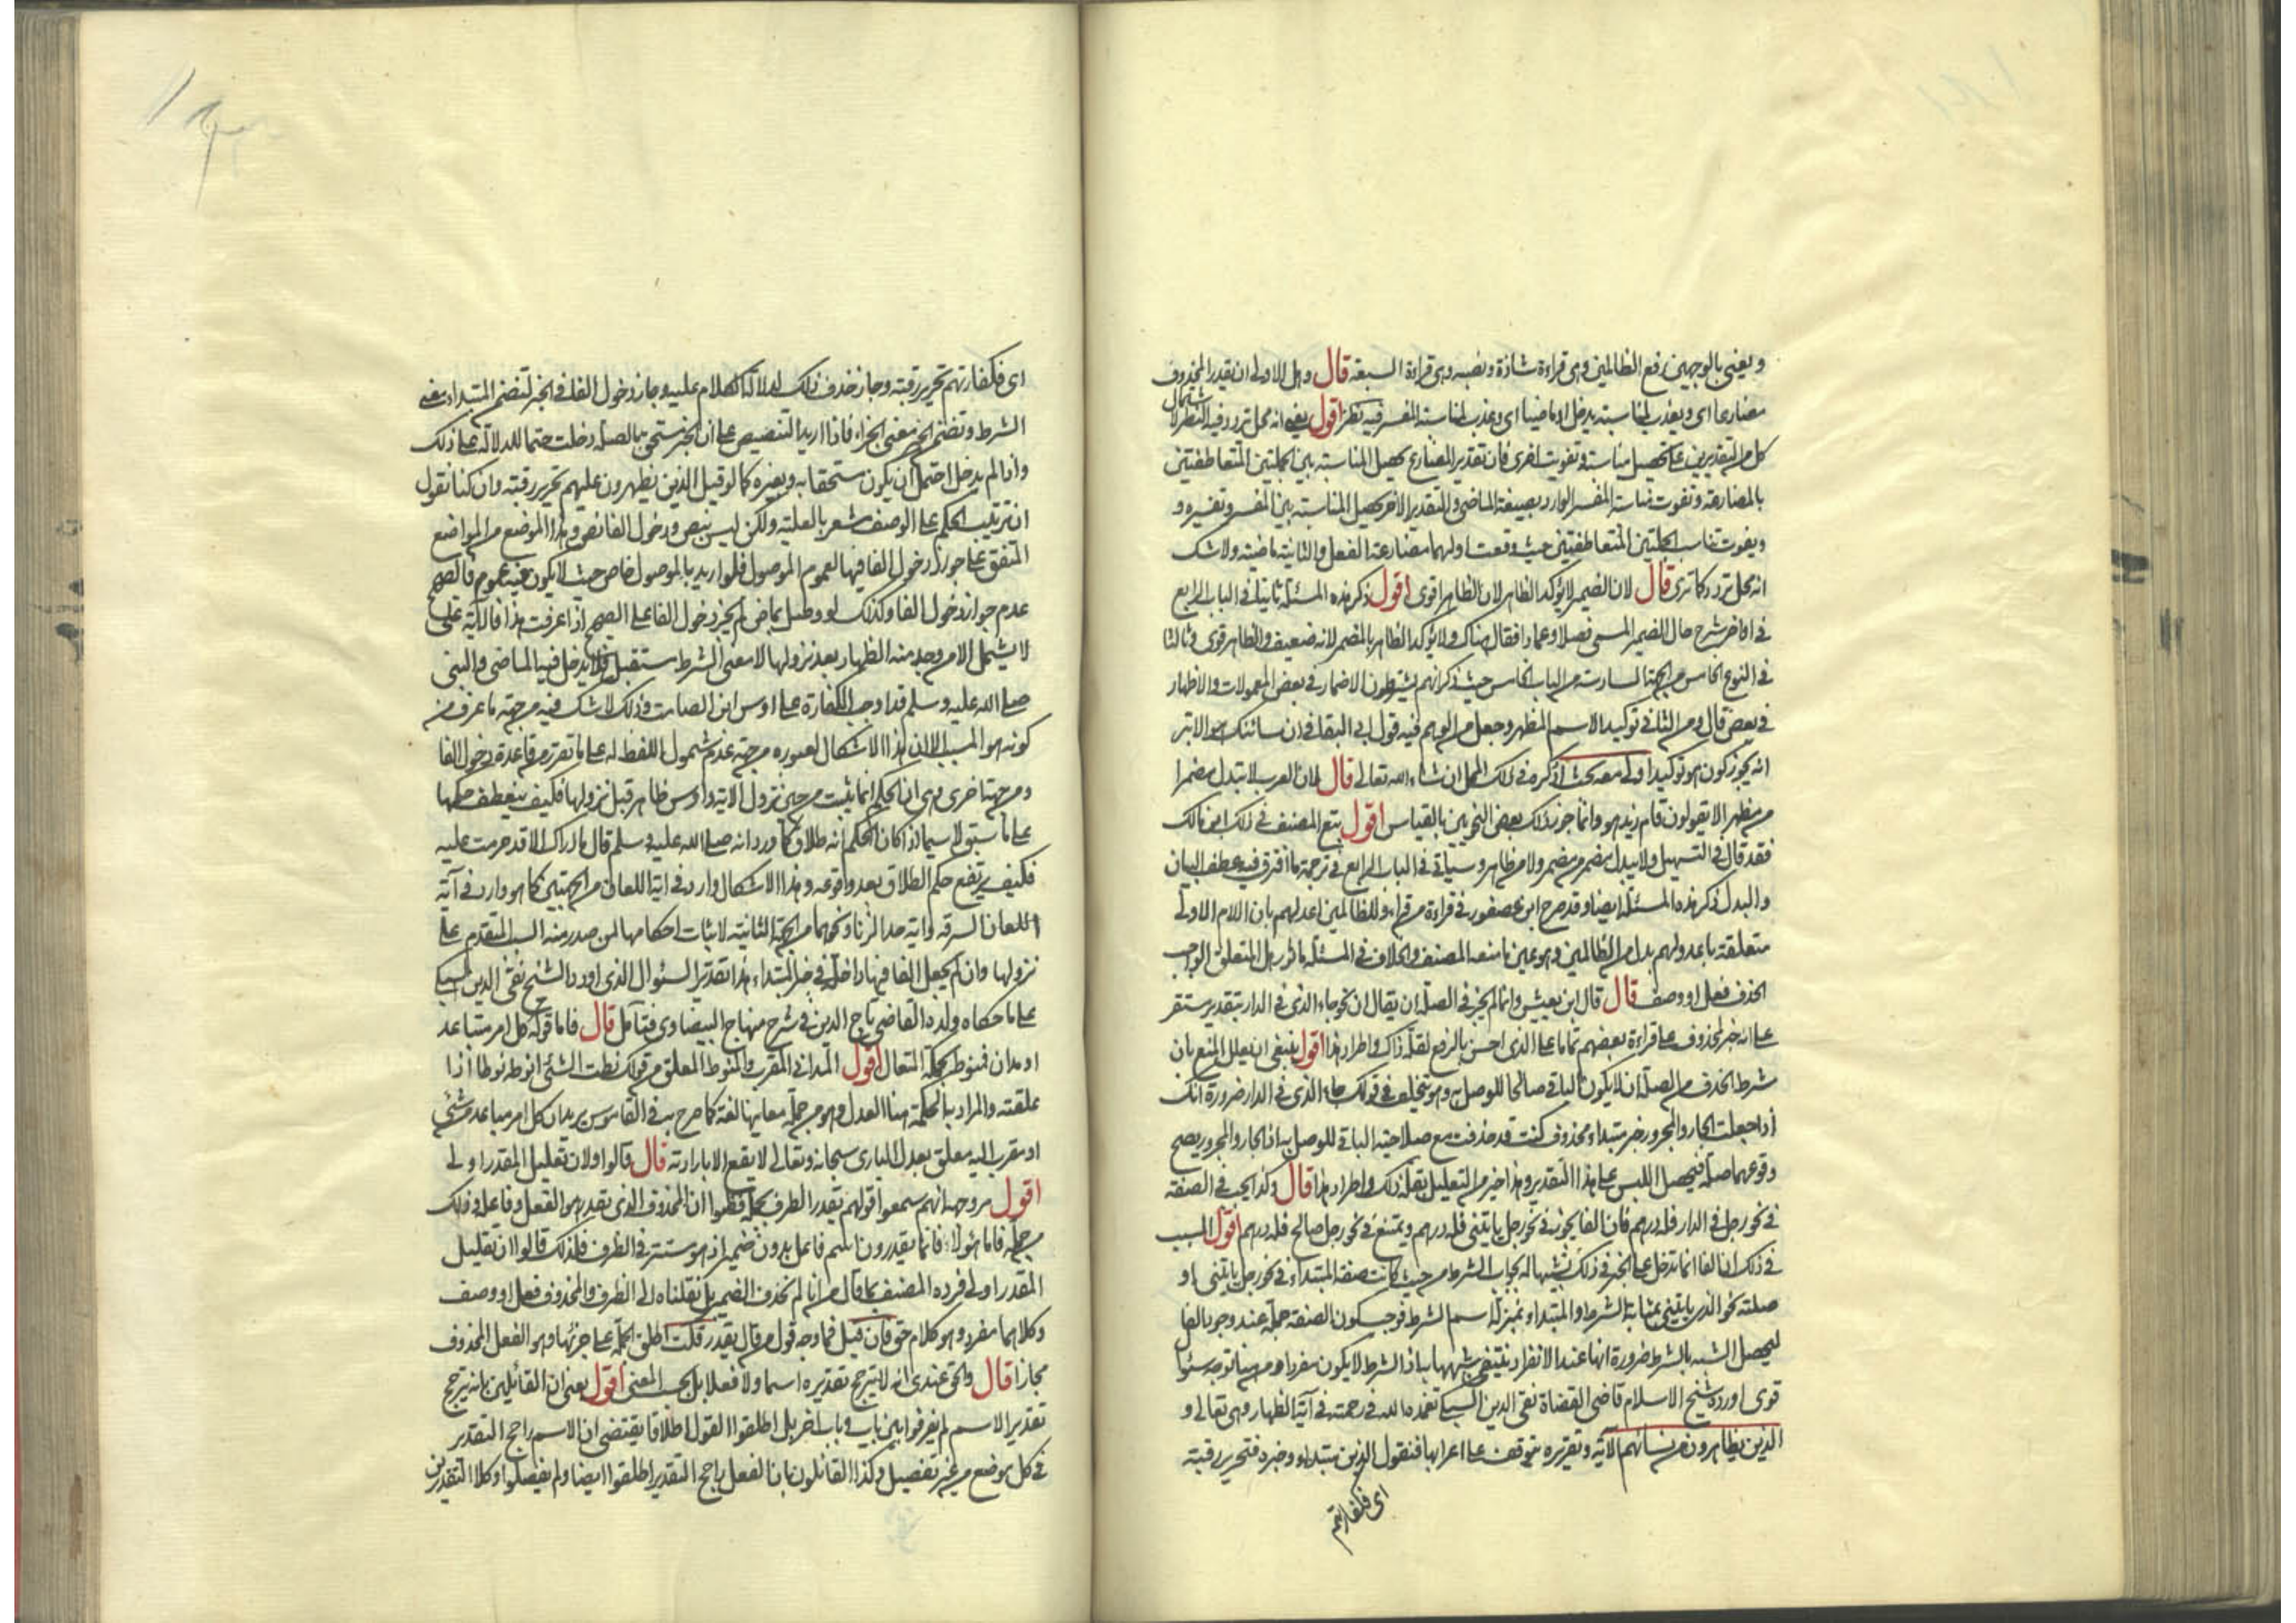 ويعني بالوجهين رفع الظالمين وهي قراءة شاذة ونصبه وهي قراءة السبعة قال وهل الاولى ان يقدر المحذوف
مضارعا اي ويعذب لمناسبة يدخل او ماضيا اي وعذب لمناسبة المفسر فيه نظر اقول يعني انه محل تردد فيه النظر لاشتمال
كل من التقديرين على تحصيل مناسبة وتفويت اخرى فان تقدير المضارع يحصل المناسبة بين الجملتين المتعاطفتين
بالمضارعة وتفوت مناسبة المفسر الوارد بصيغة الماضي والتقدير الاخر يحصل المناسبة بين المفسر وتفسيره و
ويفوت تناسب الجملتين المتعاطفتين حيث وقعت اولهما مضارعة الفعل والثانية ماضية ولا شك
انه محل تردد كما ترى قال لان الضمير لا يؤكد الظاهر لان الظاهر اقوى اقول ذكر هذه المسئلة ثانيا في الباب الرابع
في اواخر شرح حال الضمير المسمى فصلا وعمادا فقال هناك ولا يؤكد الظاهر بالمضمر لانه ضعيف والظاهر قوى وثالثا
في النوع الخامس من الجهة السادسة من الباب الخامس حيث ذكر انهم يشترطون الاضمار في بعض المعمولات والاظهار
في بعض قال ومن الثاني توكيد الاسم المظهر وجعل من الوهم فيه قول ابي البقا في ان شانئك هو الابتر
انه يجوز كون هو توكيدا ولي معه بحث اذكره في ذلك المحل ان شاء الله تعالى قال لان العرب لا تبدل مضمرا
من مظهر لا يقولون قام زيد هو وانما جوز ذلك بعض النحويين بالقياس اقول تبع المصنف في ذلك ابن مالك
فقد قال في التسهيل ولا يبدل مضمر من مضمر ولا من ظاهر وسيأتي في الباب الرابع في ترجمة ما افترق فيه عطف البيان
والبدل ذكر هذه المسئلة ايضا وقد صرح ابن عصفور في قراءة من قراء وللظالمين اعد لهم بان اللام الاولى
متعلقة باعد ولهم بدل من الظالمين وهو عين ما منعه المصنف والخلاف في المسئلة مأثور هل المتعلق الواجب
الحذف فعل او وصف قال قال ابن يعيش وانما لم يجز في الصلة ان يقال ان نحو جاء الذي في الدار بتقدير مستقر
على انه خبر لمحذوف على قراءة بعضهم تماما على الذي احسن بالرفع لقلة ذاك واطراد هذا اقول ينبغي ان يعلل المنع بان
شرط الحذف من الصلة ان لا يكون الباقي صالحا للوصل به وهو متخلف في قولك جاء الذي في الدار ضرورة انك
اذا جعلت الجار والمجرور خبر مبتداء محذوف كنت قد حذفت مع صلاحية الباقي للوصل به اذ الجار والمجرور يصح
وقوعهما صلة فيحصل اللبس على هذا التقدير وهذا خير من التعليل بقلة ذلك واطراد هذا قال وكذا يجب في الصفة
في نحو رجل في الدار فله درهم فان الفا يجوز في نحو رجل يأتيني فله درهم ويمتنع في نحو رجل صالح فله درهم اقول السبب
في ذلك ان الفا انما تدخل على الخبر في ذلك تشبيها له بجواب الشرط من حيث كانت صفة المبتداء في نحو رجل يأتيني او
صلته نحو الذي يأتيني بمثابة الشرط والمبتداء بمنزلة اسم الشرط فوجب كون الصفة جملة عند وجود الفا
ليحصل الشبه بالشرط ضرورة انها عند الانفراد ينتفي شبهها به اذ الشرط لا يكون مفردا ومن هنا توجه سئوال
قوى اورده شيخ الاسلام قاضي القضاة تقي الدين السبكي تغمده الله في رحمته في آية الظهار وهي تعالى و
الذين يظاهرون من نسائهم الآية وتقريره متوقف على اعرابها فنقول الذين مبتداء وخبره فتحرير رقبة
اى فكفارتهم
اى فكفارتهم تحرير رقبة وجاز حذف ذلك لدلالة الكلام عليه وجاز دخول الفا في الخبر لتضمن المبتداء معنى
الشرط وتضمن الخبر معنى الجزاء فاذا اريد التنصيص على ان الخبر مستحق بالصلة دخلت حتما للدلالة على ذلك
واذا لم يدخل احتمل ان يكون مستحقا به وبغيره كما لو قيل الذين يظهرون عليهم تحرير رقبة وان كنا نقول
ان ترتيب الحكم على الوصف مشعر بالعلية ولكن ليس بنص ودخول الفا نص وهذا الموضع من المواضع
المتفق على جواز دخول الفا فيها لعموم الموصول فلو اريد بالموصول خاص حيث لا يكون فيه عموم فالصحيح
عدم جواز دخول الفا وكذلك لو وصل بماض لم يجز دخول الفا على الصحيح اذا عرفت هذا فالآية على
لا يشمل الا من وجد منه الظهار بعد نزولها لان معنى الشرط مستقبل فلا يدخل فيه الماضي والنبي
صلى الله عليه وسلم قد اوجب الكفارة على اوس ابن الصامت وذلك لا شك فيه من جهة ما عرف من
كونه هو السبب الا ان هذا الاشكال لعبوره من جهة عدم شمول اللفظ له على ما تقرر من قاعدة دخول الفا
ومن جهة اخرى وهي ان الحكم انما يثبت من حين نزول الاية واوس ظاهر قبل نزولها فكيف ينعطف حكمها
على ما سبق لا سيما اذا كان الحكم انه طلاق كما ورد انه صلى الله عليه وسلم قال ما اراك الا قد حرمت عليه
فكيف يرتفع حكم الطلاق بعد وقوعه وهذا الاشكال وارد في اية اللعان من الجهتين كما هو وارد في آية
اللعان السرقة واية حد الزنا ونحوهما من الجهة الثانية لاثبات احكامها لمن صدر منه السبب المتقدم على
نزولها وان لم يجعل الفا فيها داخلة في خبر المبتداء هذا تقدير السئوال الذي اورد الشيخ تقي الدين السبكي
على ما حكاه ولده القاضي تاج الدين في شرح منهاج البيضاوي فتأمل قال فاما قوله كل امر متباعد
او مدان فمنوط بحكمة المتعال اقول المدانى المقرب والمنوط المعلق من قولك نطت الشئ انوطه نوطا اذا
علقته والمراد بالحكمة هنا العدل وهو من جملة معانيها لغة كما صرح به في القاموس يريد ان كل امر مباعد من شئ
او مقرب اليه معلق بعدل الباري سبحانه وتعالى لا يقع الا بارادته قال قالوا ولان تقليل المقدر اولى
اقول من وجه انهم سمعوا قولهم يقدر الظرف بجملة فظنوا ان المحذوف الذي يقدر هو الفعل وفاعله وذلك
جملة فاما هولاء فانما يقدرون اسم فاعل بدون ضمير اذ هو مستتر في الظرف فلذلك قالوا ان تقليل
المقدر اولى فرده المصنف بما قال من انا لم نحذف الضمير بل نقلناه الى الظرف والمحذوف فعل او وصف
وكلاهما مفرد وهو كلام حق فان قيل فما وجه قول من قال يقدر قلت اطلق الجملة على جزئها وهو الفعل المحذوف
مجازا قال والحق عندي انه لا يترجح تقديره اسما ولا فعلا بل بحسب المعنى اقول يعني ان القائلين بانه يترجح
تقدير الاسم لم يفرقوا بين باب وباب اخر بل اطلقوا القول اطلاقا يقتضي ان الاسم راجح التقدير
في كل موضع من غير تفصيل وكذا القائلون بان الفعل راجح التقدير اطلقوا ايضا ولم يفصلوا وكلا التقديرين